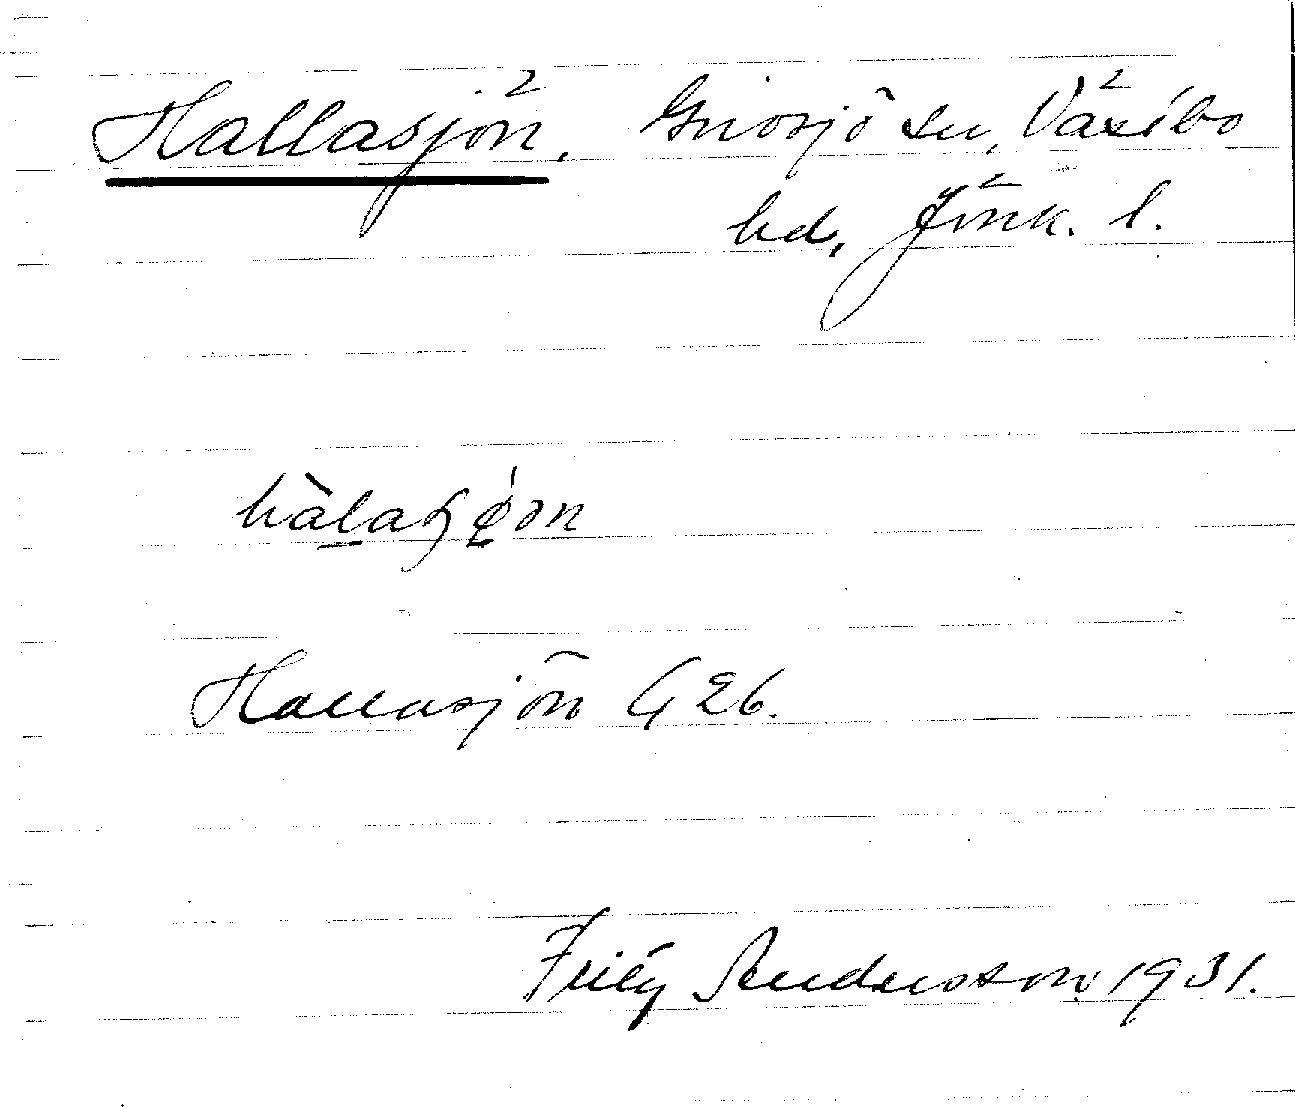 Hallasjön. Gnosjö sn, Västbo
hd, Jönk. l.
Hallasjön G 26.
Fritz Andersson 1931.